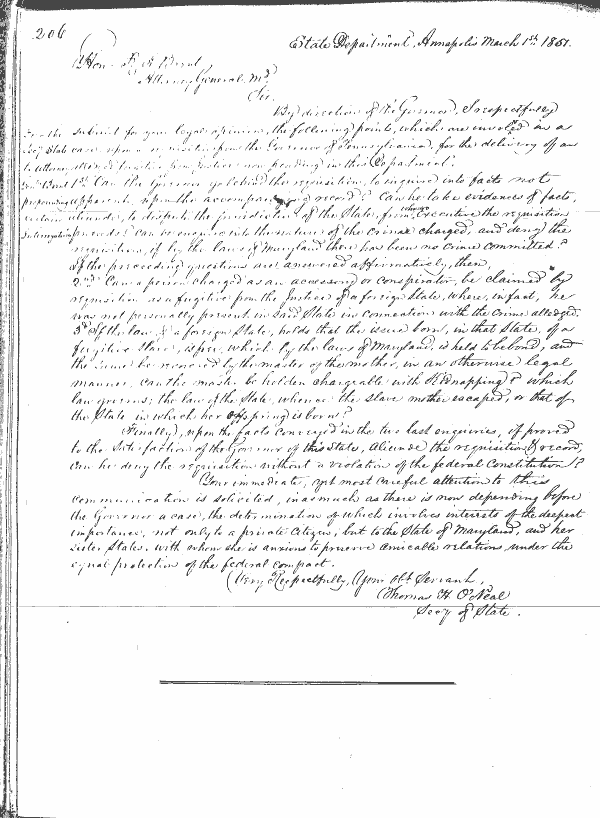 206
State Department, Annapolis March 1st 1851.
Hon.
Attorney General Md
Sir.
By direction of the Governor, I respectfully
submit for your legal opinion, the following points, which are involved in a
case, upon a requisition from the Governor of Pennsylvania, for the delivery of an
alledged fugitive from Justice now pending in this Department.
For the
Secy State
to Attorney
Genl
propounding
certain
Interrogatories
1st Can the Governor go behind the requisition, to inquire into facts not
apparent, upon the accompanying record? Can he take evidence of facts,
aliunde, to dispute the jurisdiction of the State, from whose Executive the requisition
proceeds? Can he enquire into the nature of the crime charged, and deny the
requisition, if by the laws of Maryland there has been no crime committed?
If the preceeding questions are answered affirmatively, then,
2nd Can a person charged as an accessory or conspirator, be claimed by
requisition as a fugitive from the Justice of a foreign State, where, in fact, he
was not personally present in said State in connection with the crime alledged.
3d If the law of a foreign State, holds that the issue born, in that State, of a
fugitive slave, is free, which by the laws of Maryland, is held to be bond, and
the same be removed by the master of the mother, in an otherwise legal
manner, can the master be holden chargeable with Kidnapping? Which
law governs; the law of the State, whence the slave mother escaped, or that of
the State in which her offspring is born?
Finally, upon the facts conveyed in the two last enquiries, if proved
to the satisfaction of the Governor of this State, aliunde the requisition & record,
can he deny the requisition without a violation of the federal Constitution?
Your immediate, yet most careful attention to this
communication is solicited, inasmuch as there is now depending before
the Governor a case, the determination of which involves interests of the deepest
importance, not only to a private citizen, but to the State of Maryland, and her
sister States, with whom she is anxious to preserve amicable relations under the
equal protection of the federal compact.
Very Respectfully, Your obt. Servant,
Thomas H. O'Neal
Secy of State.